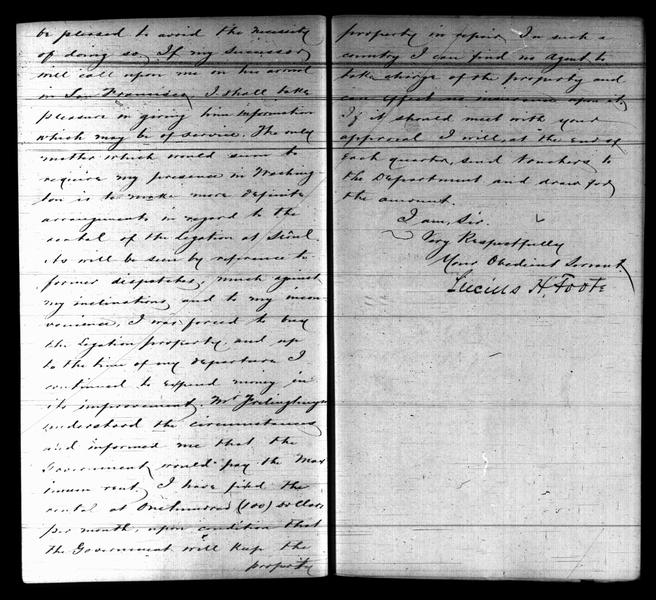 be pleased to avoid the necessity
of doing so. If my successor
will call upon me on his arrival
in San Francisco, I shall take
pleasure in giving him information
which may be of service. The only
matter which would seem to
require my presence in Washing-
ton is to make more definite
arrangements in regard to the
rental of the Legation at Séoul.
As will be seen by reference to
former dispatches, much against
my inclinations, and to my incon-
venience, I was forced to buy
the Legation property, and up
to the time of my departure I
continued to expend money in
its improvement. Mr Frelinghuysen
understood the circumstances
and informed me that the
Government would pay the Max
imum rent. I have fixed the
rental at One hundred (100) dollars
per month, upon condition that
the Government will keep the
property
property in repair. In such a
country I can find no agent to
take charge of the property and
can effect no insurance upon it.
If it should meet with your
approval I will, at the end of
each quarter, send vouchers to
the Department and draw for
the amount.
I am, Sir.
Very Respectfully
Your Obedient Servant,
Lucius H. Foote